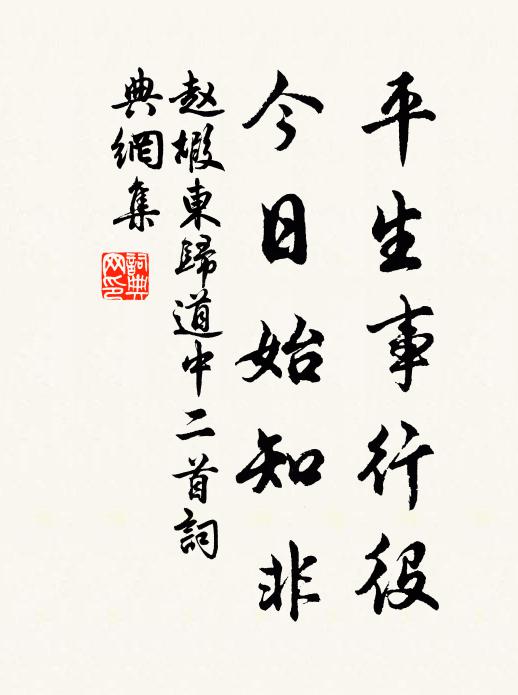 平生事行役
今日始知非
赵嘏東歸道中二首詞
典網集
詞典网印